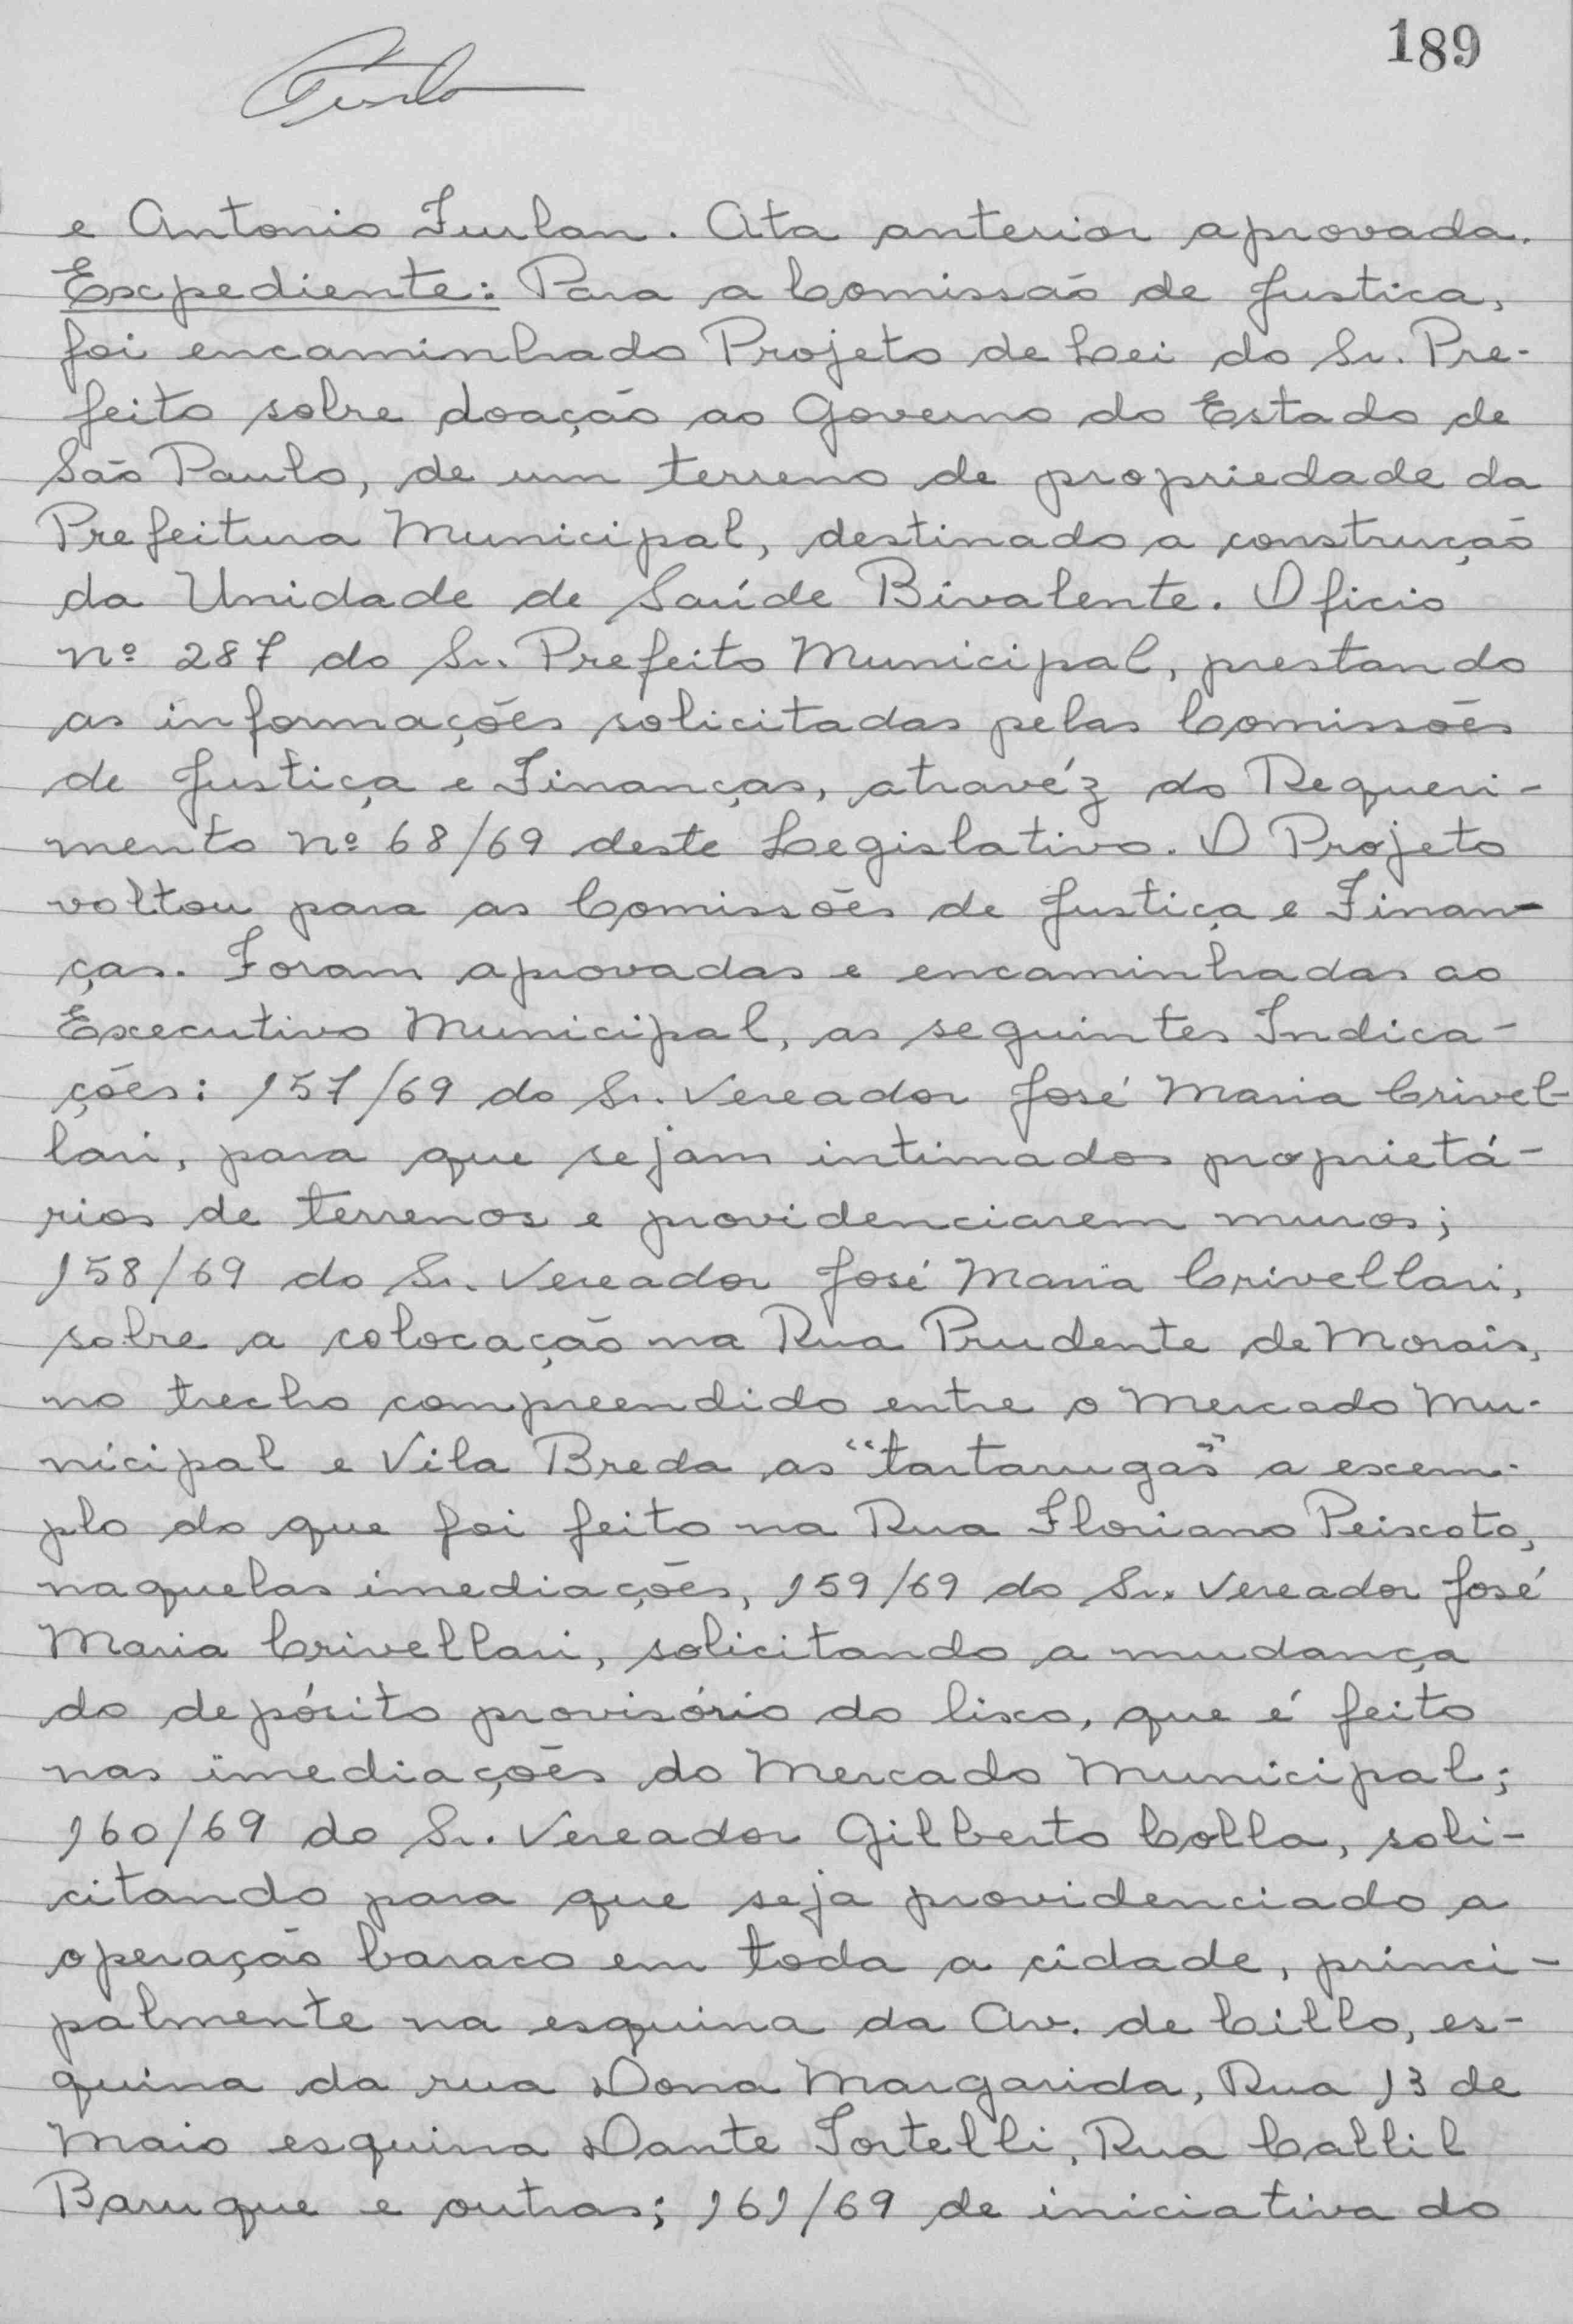 189
e Antonio Furlan. Ata anterior aprovada.
Expediente: Para a Comissão de Justica,
foi encaminhado Projeto de Lei do Sr. Pre-
feito sobre doação ao Governo do Estado de
São Paulo, de um terreno de propriedade da
Prefeitura Municipal, destinado a construção
da Unidade de Saúde Bivalente. Oficio
nº 287 do Sr. Prefeito Municipal, prestando
as informações solicitadas pelas Comissões
de Justiça e Finanças, atravéz do Requeri-
mento nº 68/69 deste Legislativo. O Projeto
voltou para as Comissões de Justiça e Finan-
ças. Foram aprovadas e encaminhadas ao
Executivo Municipal, as seguintes Indica-
ções: 157/69 do Sr. Vereador José Maria Crivel-
lari, para que sejam intimados proprietá-
rios de terrenos e providenciarem muros;
158/69 do Sr. Vereador José Maria Crivellari,
sobre a colocação na Rua Prudente de Morais,
no trecho compreendido entre o Mercado Mu-
nicipal e Vila Breda as "tartarugas" a exem-
plo do que foi feito na Rua Floriano Peixoto,
naquelas imediações, 159/69 do Sr. Vereador José
Maria Crivellari, solicitando a mudança
do depósito provisório do lixo, que é feito
nas imediações do Mercado Municipal;
160/69 do Sr. Vereador Gilberto Colla, soli-
citando para que seja providenciado a
operação buraco em toda a cidade, princi-
palmente na esquina da Av. de Cillo, es-
quina da rua Dona Margarida, Rua 13 de
Maio esquina Dante Tortelli, Rua Callil
Baruque e outras; 161/69 de iniciativa do